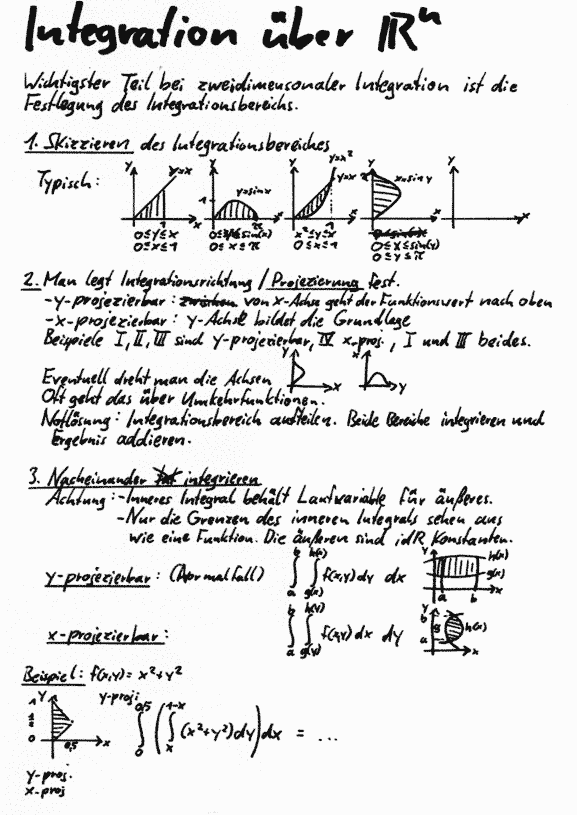 Integration über ℝⁿ
Wichtigster Teil bei zweidimensonaler Integration ist die
Festlegung des Integrationsbereichs.
1. Skizzieren des Integrationsbereiches
Typisch:
y y=x x 1
y y=sinx 1 π x
y y=x² y=x 1 x
y x=siny π x
y x
0≤y≤x 0≤y≤sin(x) x²≤y≤x 0≤x≤sin(y)
0≤x≤1 0≤x≤π 0≤x≤1 0≤y≤π
2. Man legt Integrationsrichtung / Projezierung fest.
-y-projezierbar: von x-Achse geht der Funktionswert nach oben
-x-projezierbar: y-Achse bildet die Grundlage
Beispiele I, II, III sind y-projezierbar, IV x-proj., I und III beides.
Eventuell dreht man die Achsen y x x y
Oft geht das über Umkehrfunktionen.
Notlösung: Integrationsbereich aufteilen. Beide Bereiche integrieren und
Ergebnis addieren.
3. Nacheinander integrieren
Achtung: -Inneres Integral behält Laufvariable für äußeres.
-Nur die Grenzen des inneren Integrals sehen aus
wie eine Funktion. Die äußeren sind idR Konstanten.
y-projezierbar: (Normalfall) ∫ₐᵇ ∫_g(x)^h(x) f(x,y) dy dx y h(x) g(x) a b x
x-projezierbar: ∫ₐᵇ ∫_g(y)^h(y) f(x,y) dx dy y b g h(x) a x
Beispiel: f(x,y) = x²+y²
y 1 ½ 0 0,5 x
y-proj:
∫₀^0,5 (∫ₓ^1-x (x²+y²)dy)dx = ...
y-proj.
x-proj